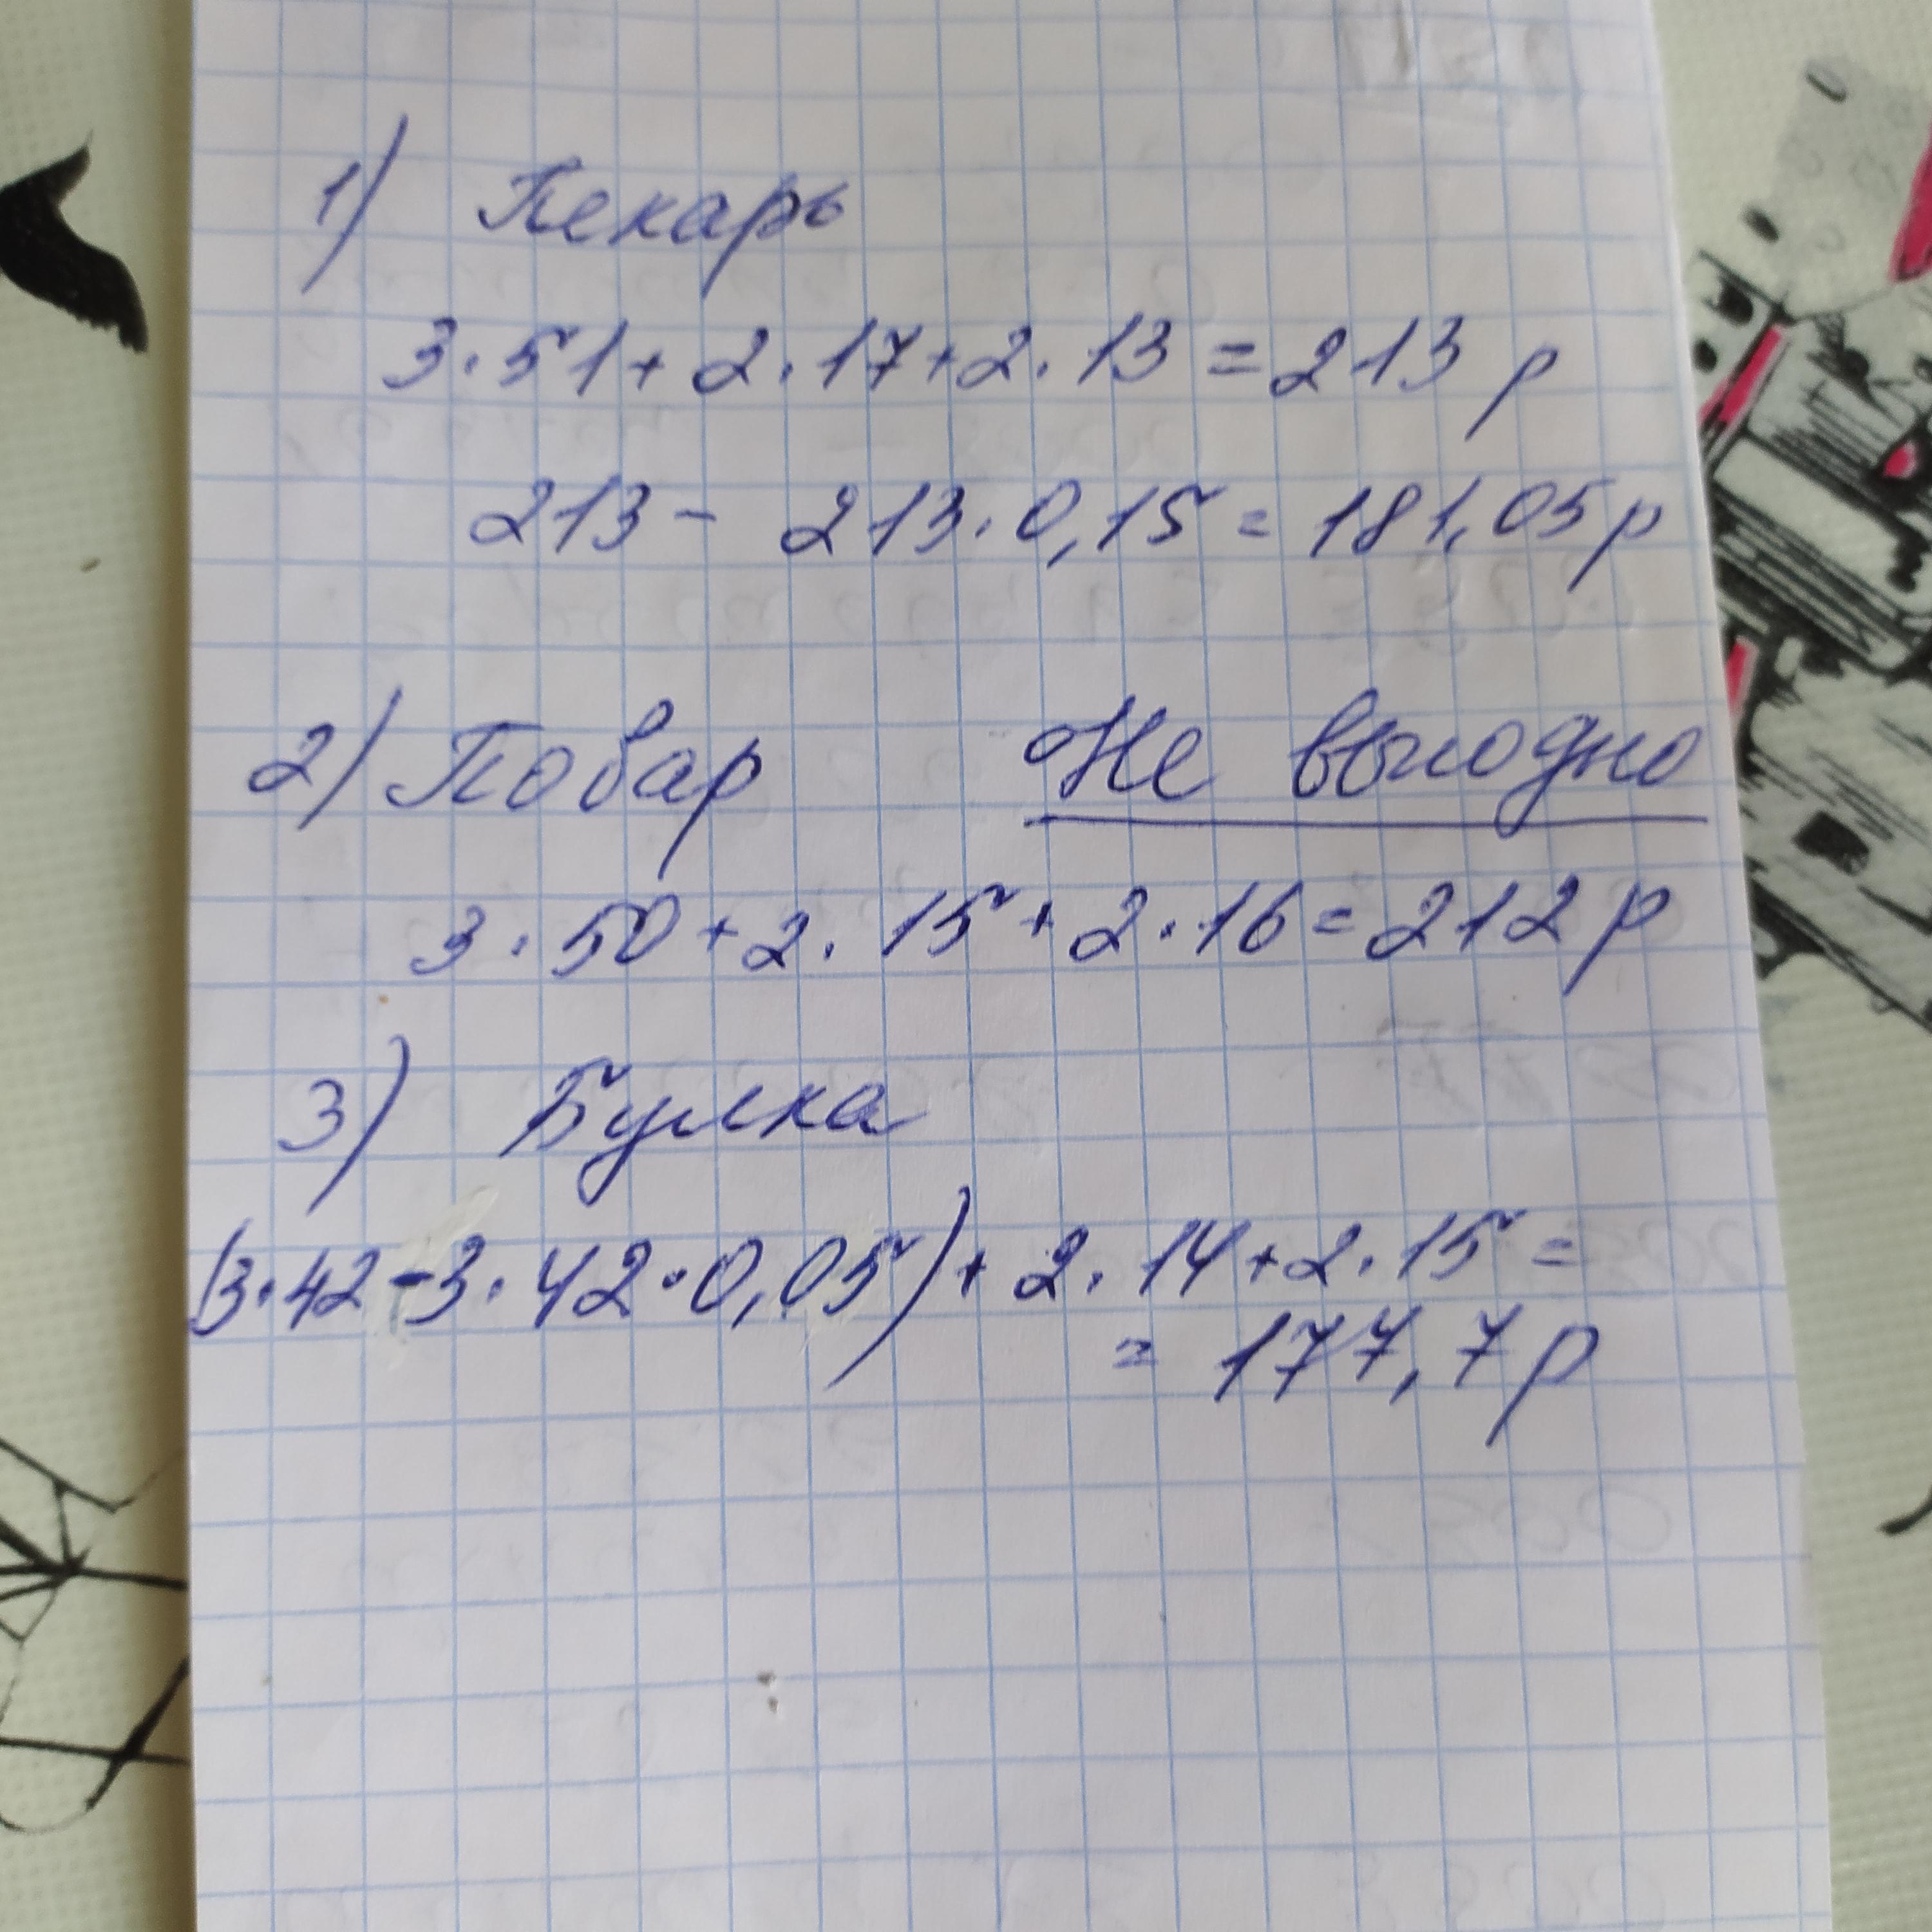 1) Пекарь
3·51+2·17+2·13=213 р
213- 213·0,15=181,05р
2) Повар Не выгодно
3·50+2·15+2·16=212р
3) Булка
(3·42-3·42·0,05)+2·14+2·15=
= 177,7р